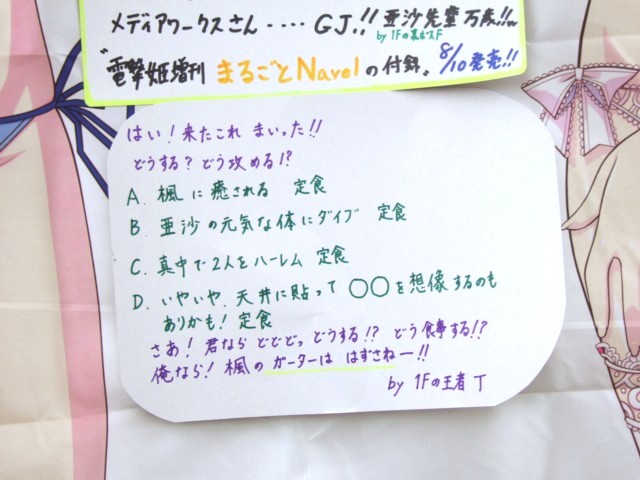 メディアワークスさん‥‥GJ!! 亜沙先輩万歳!!
by 1Fの裏ボスF
"電撃姫増刊 まるごとNavelの付録" 8/10発売!!
はい！来たこれ まいった!!
どうする？どう攻める!?
A. 楓に癒される 定食
B. 亜沙の元気な体にダイブ 定食
C. 真中で2人をハーレム 定食
D. いやいや、天井に貼って〇〇を想像するのも
ありかも！定食
さあ！君なら どどどっ、どうする!? どう食事する!?
俺なら！楓の ガーターは はずさねー!!
by 1Fの王者 T